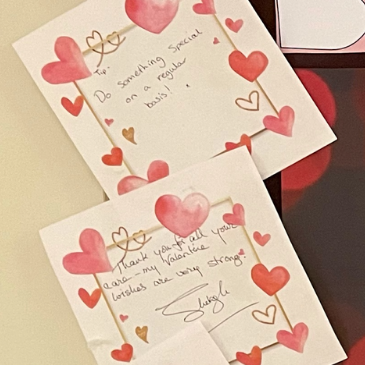 Tip -
Do something special
on a regular
basis!
Thank you for all your
care - my Valentine
wishes are very strong.